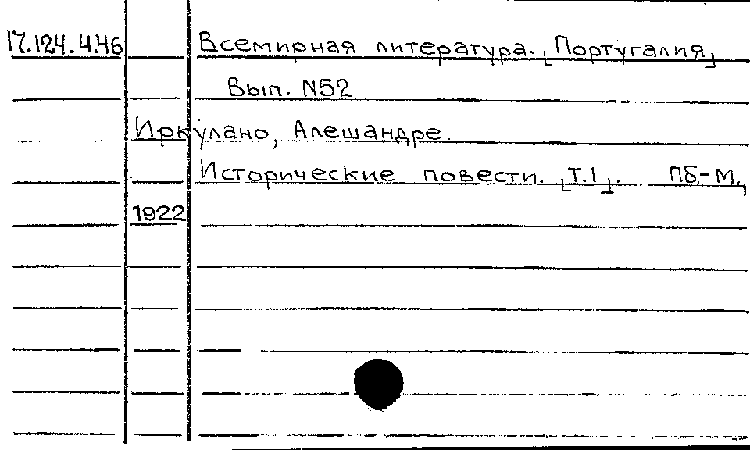 17.124.4.46 Всемирная литература. [Португалия]
Вып. N52
Иркулано, Алешандре.
Исторические повести. [Т.1]. ПБ-М.,
1922